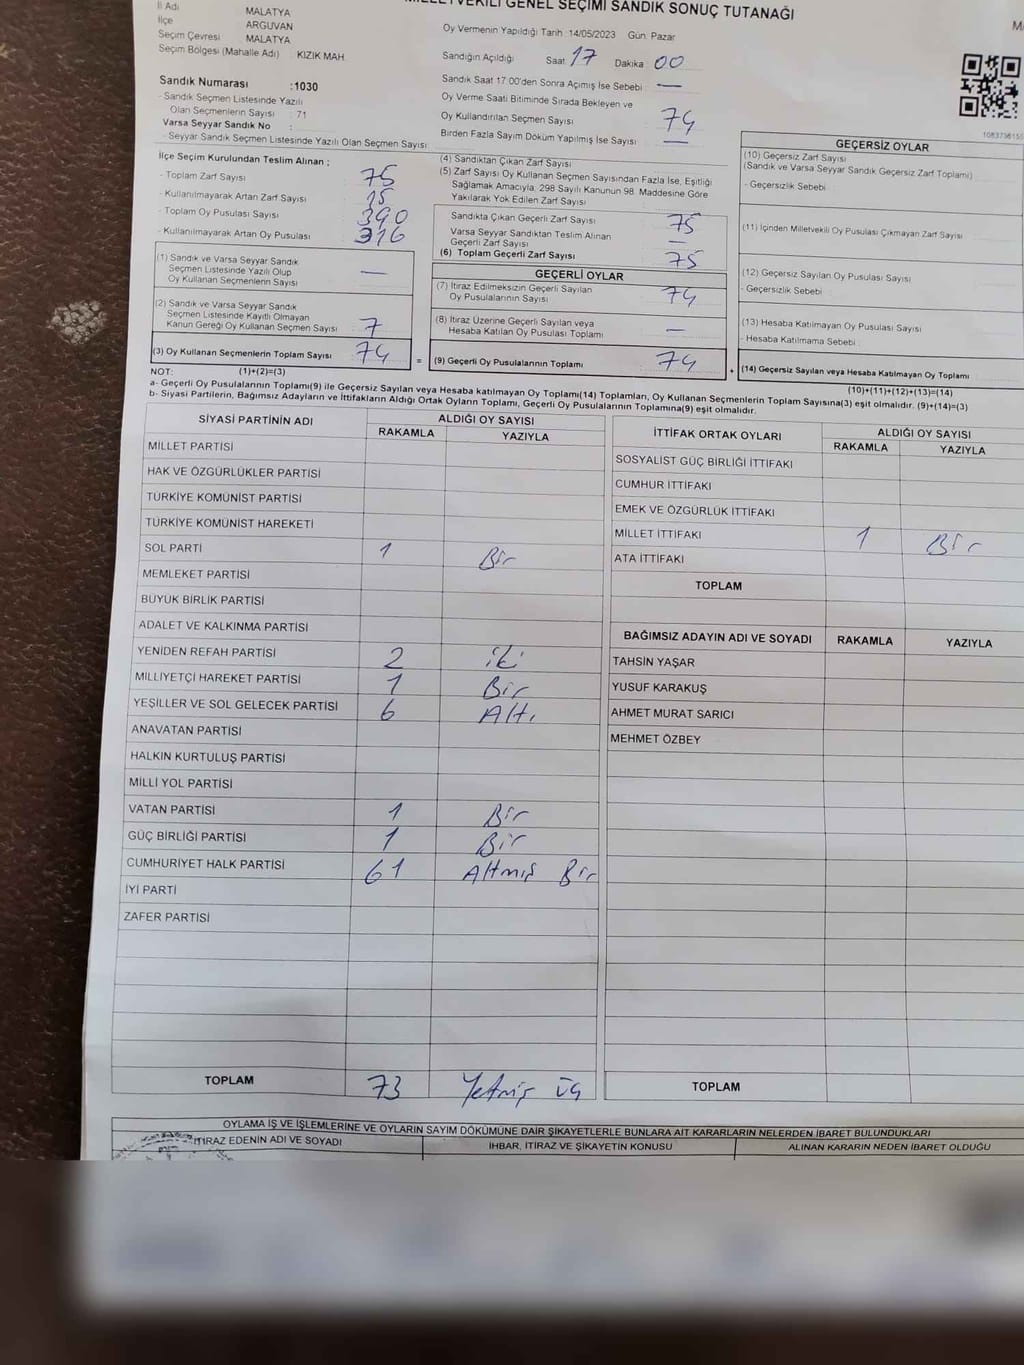 MİLLETVEKİLİ GENEL SEÇİMİ SANDIK SONUÇ TUTANAĞI
İl Adı MALATYA
İlçe ARGUVAN
Seçim Çevresi MALATYA
Seçim Bölgesi (Mahalle Adı) KIZIK MAH.
Oy Vermenin Yapıldığı Tarih 14/05/2023 Gün: Pazar
Sandığın Açıldığı Saat 17 Dakika 00
Sandık Saat 17:00'den Sonra Açılmış İse Sebebi —
Oy Verme Saati Bitiminde Sırada Bekleyen ve
Oy Kullandırılan Seçmen Sayısı 74
Birden Fazla Sayım Döküm Yapılmış İse Sayısı —
Sandık Numarası :1030
- Sandık Seçmen Listesinde Yazılı
Olan Seçmenlerin Sayısı : 71
Varsa Seyyar Sandık No :
- Seyyar Sandık Seçmen Listesinde Yazılı Olan Seçmen Sayısı:
İlçe Seçim Kurulundan Teslim Alınan ;
- Toplam Zarf Sayısı 75
- Kullanılmayarak Artan Zarf Sayısı
- Toplam Oy Pusulası Sayısı 390
- Kullanılmayarak Artan Oy Pusulası 316
(1) Sandık ve Varsa Seyyar Sandık
Seçmen Listesinde Yazılı Olup
Oy Kullanan Seçmenlerin Sayısı —
(2) Sandık ve Varsa Seyyar Sandık
Seçmen Listesinde Kayıtlı Olmayan
Kanun Gereği Oy Kullanan Seçmen Sayısı 7
(3) Oy Kullanan Seçmenlerin Toplam Sayısı 74 =
(4) Sandıktan Çıkan Zarf Sayısı
(5) Zarf Sayısı Oy Kullanan Seçmen Sayısından Fazla İse, Eşitliği
Sağlamak Amacıyla, 298 Sayılı Kanunun 98. Maddesine Göre
Yakılarak Yok Edilen Zarf Sayısı
Sandıkta Çıkan Geçerli Zarf Sayısı 75
Varsa Seyyar Sandıktan Teslim Alınan
Geçerli Zarf Sayısı —
(6) Toplam Geçerli Zarf Sayısı 75
GEÇERLİ OYLAR
(7) İtiraz Edilmeksizin Geçerli Sayılan
Oy Pusulalarının Sayısı 74
(8) İtiraz Üzerine Geçerli Sayılan veya
Hesaba Katılan Oy Pusulası Toplamı —
(9) Geçerli Oy Pusulalarının Toplamı 74 +
GEÇERSİZ OYLAR
(10) Geçersiz Zarf Sayısı
(Sandık ve Varsa Seyyar Sandık Geçersiz Zarf Toplamı)
- Geçersizlik Sebebi
(11) İçinden Milletvekili Oy Pusulası Çıkmayan Zarf Sayısı
(12) Geçersiz Sayılan Oy Pusulası Sayısı
- Geçersizlik Sebebi
(13) Hesaba Katılmayan Oy Pusulası Sayısı
- Hesaba Katılmama Sebebi
(14) Geçersiz Sayılan veya Hesaba Katılmayan Oy Pusulası Toplamı
(10)+(11)+(12)+(13)=(14)
NOT: (1)+(2)=(3)
a- Geçerli Oy Pusulalarının Toplamı(9) ile Geçersiz Sayılan veya Hesaba katılmayan Oy Toplamı(14) Toplamları, Oy Kullanan Seçmenlerin Toplam Sayısına(3) eşit olmalıdır. (9)+(14)=(3)
b- Siyasi Partilerin, Bağımsız Adayların ve İttifakların Aldığı Ortak Oyların Toplamı, Geçerli Oy Pusulalarının Toplamına(9) eşit olmalıdır.
SİYASİ PARTİNİN ADI ALDIĞI OY SAYISI
RAKAMLA YAZIYLA
MİLLET PARTİSİ
HAK VE ÖZGÜRLÜKLER PARTİSİ
TÜRKİYE KOMÜNİST PARTİSİ
TÜRKİYE KOMÜNİST HAREKETİ
SOL PARTİ 1 Bir
MEMLEKET PARTİSİ
BÜYÜK BİRLİK PARTİSİ
ADALET VE KALKINMA PARTİSİ
YENİDEN REFAH PARTİSİ 2 iki
MİLLİYETÇİ HAREKET PARTİSİ 1 Bir
YEŞİLLER VE SOL GELECEK PARTİSİ 6 Altı
ANAVATAN PARTİSİ
HALKIN KURTULUŞ PARTİSİ
MİLLİ YOL PARTİSİ
VATAN PARTİSİ 1 Bir
GÜÇ BİRLİĞİ PARTİSİ 1 Bir
CUMHURİYET HALK PARTİSİ 61 Altmış Bir
İYİ PARTİ
ZAFER PARTİSİ
TOPLAM 73 Yetmiş Üç
İTTİFAK ORTAK OYLARI ALDIĞI OY SAYISI
RAKAMLA YAZIYLA
SOSYALİST GÜÇ BİRLİĞİ İTTİFAKI
CUMHUR İTTİFAKI
EMEK VE ÖZGÜRLÜK İTTİFAKI
MİLLET İTTİFAKI 1 Bir
ATA İTTİFAKI
TOPLAM
BAĞIMSIZ ADAYIN ADI VE SOYADI RAKAMLA YAZIYLA
TAHSİN YAŞAR
YUSUF KARAKUŞ
AHMET MURAT SARICI
MEHMET ÖZBEY
TOPLAM
OYLAMA İŞ VE İŞLEMLERİNE VE OYLARIN SAYIM DÖKÜMÜNE DAİR ŞİKAYETLERLE BUNLARA AİT KARARLARIN NELERDEN İBARET BULUNDUKLARI
İTİRAZ EDENİN ADI VE SOYADI İHBAR, İTİRAZ VE ŞİKAYETİN KONUSU ALINAN KARARIN NEDEN İBARET OLDUĞU